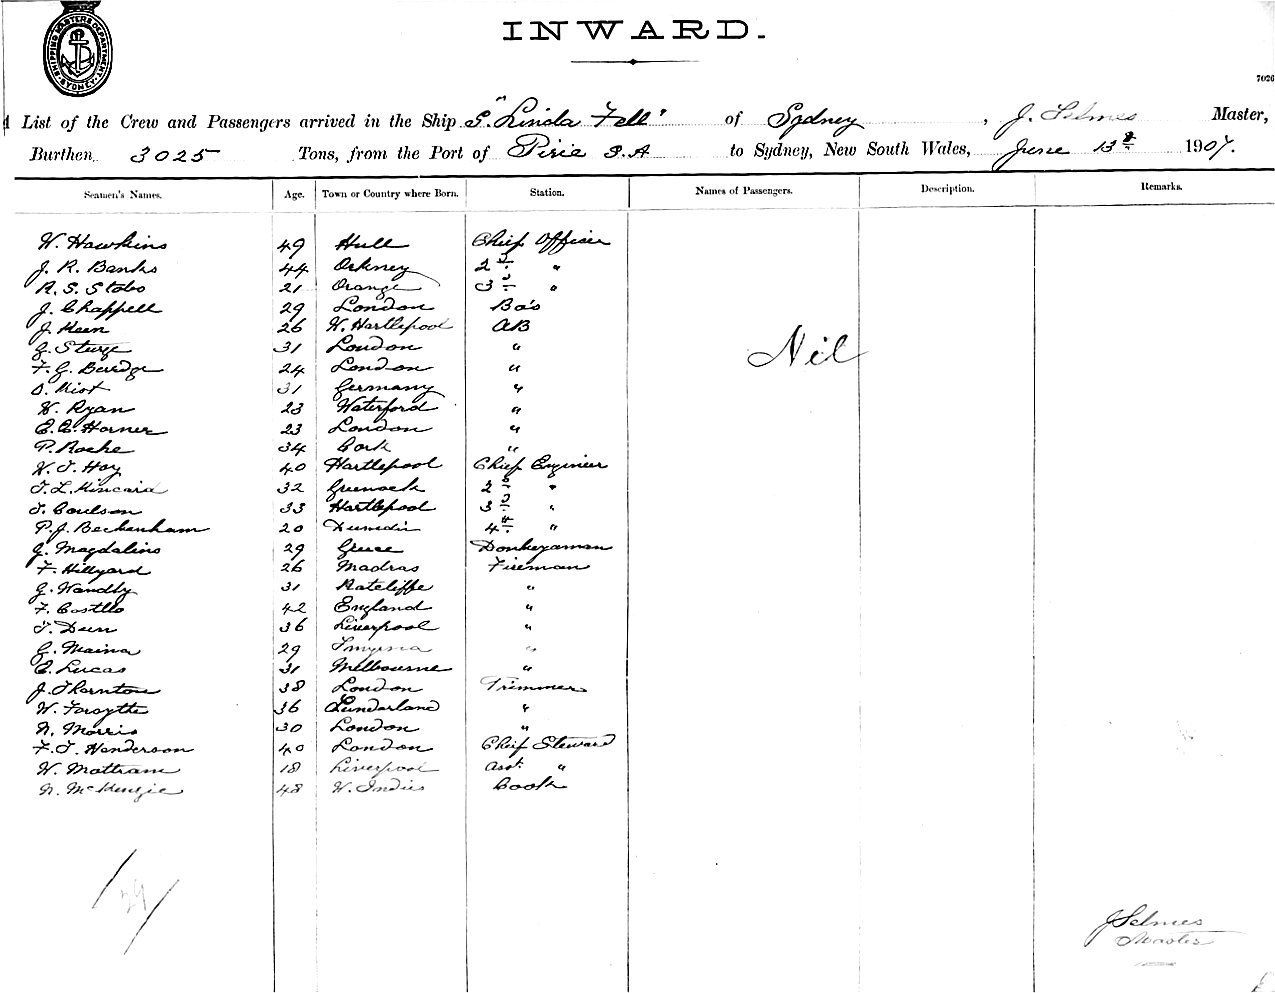 SHIPPING MASTERS DEPARTMENT SYDNEY
INWARD.
7026
List of the Crew and Passengers arrived in the Ship S. "Linda Fell" of Sydney, J. Selmes Master,
Burthen 3025 Tons, from the Port of Pirie S.A to Sydney, New South Wales, June 13th 1907.
Seamen's Names. Age. Town or Country where Born. Station. Names of Passengers. Description. Remarks.
W. Hawkins 49 Hull Chief Officer
J. R. Banks 44 Orkney 2nd "
R. S. Stobo 21 Orange 3rd "
J. Chappell 29 London Bo's
J. Keen 26 W. Hartlepool AB
G. Sturge 31 London "
Nil
F. G. Beredge 24 London "
O. Mist 31 Germany "
W. Ryan 23 Waterford "
E. E. Horner 23 London "
P. Roche 34 Cork "
W. T. Hoy 40 Hartlepool Chief Engineer
T. L. Kincaid 32 Greenock 2nd "
T. Coulson 33 Hartlepool 3rd "
P. J. Beckenham 20 Dunedin 4th "
G. Magdalino 29 Greece Donkeyman
F. Hillyard 26 Madras Fireman
G. Wandby 31 Ratcliffe "
F. Costllo 42 England "
T. Deen 36 Liverpool "
G. Maina 29 Smyrna "
E. Lucas 31 Melbourne "
J. Thornton 38 London Trimmer
W. Forsythe 36 Sunderland "
N. Morris 30 London "
F. T. Henderson 40 London Chief Steward
W. Mottram 18 Liverpool Asst. "
N. McKenzie 48 W. Indies Cook
29
J Selmes
Master